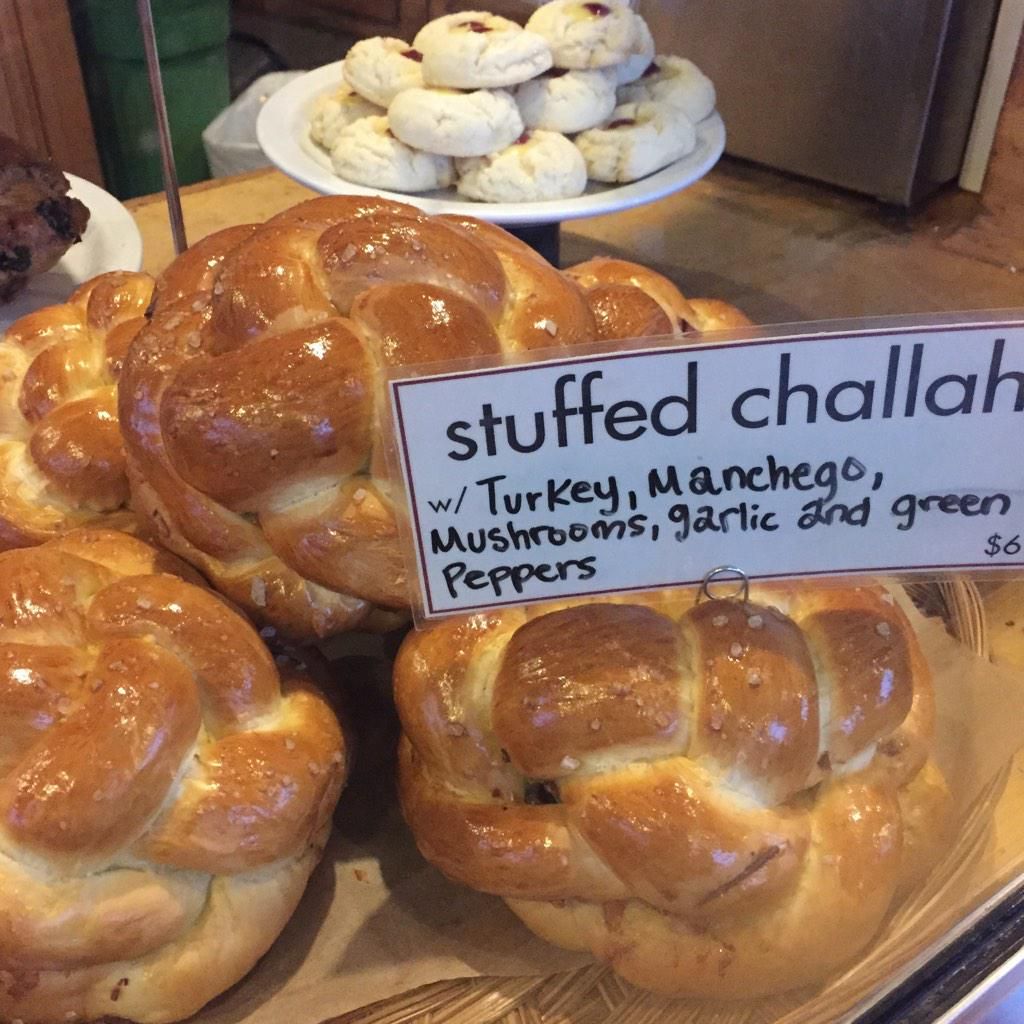 stuffed challah
w/ Turkey, Manchego,
Mushrooms, garlic and green
Peppers
$6